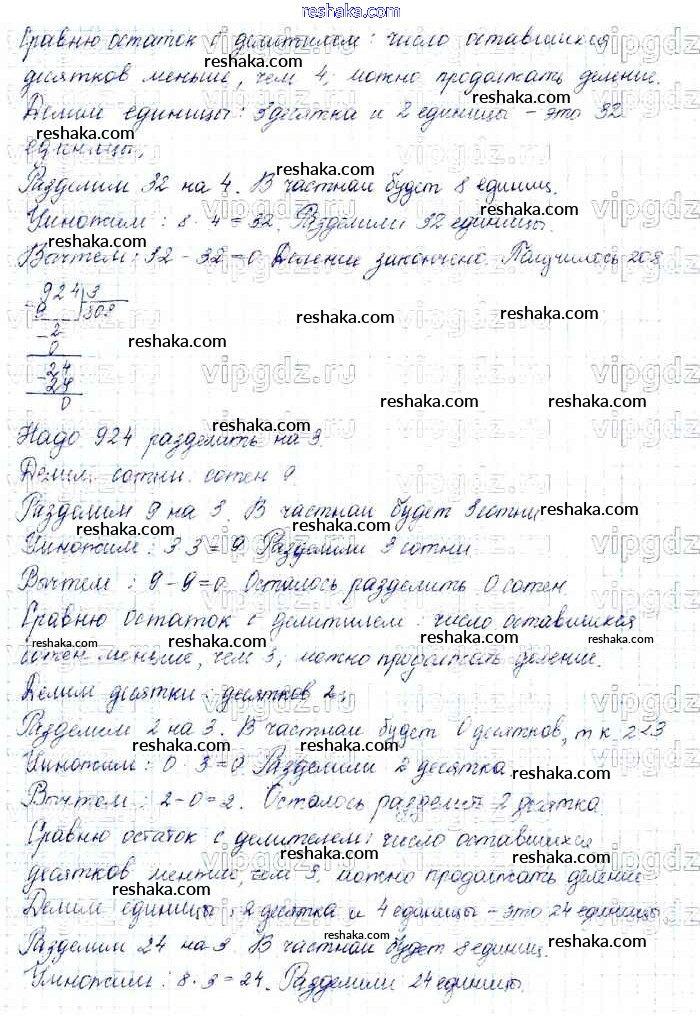 reshaka.com
Сравню остаток с делителем: число оставшихся
десятков меньше, чем 4, можно продолжать деление.
Делим единицы: 3 десятка и 2 единицы – это 32
единицы.
Разделим 32 на 4. В частном будет 8 единиц.
Умножим: 8 · 4 = 32. Разделили 32 единицы.
Вычтем: 32 - 32 = 0 Деление закончено. Получилось 208
924 3
9 308
- 2
0
- 24
24
0
Надо 924 разделить на 3.
Делим сотни. сотен 9.
Разделим 9 на 3. В частном будет 3 сотни
Умножим: 3 3 = 9 Разделили 9 сотни
Вычтем: 9 - 9 = 0. Осталось разделить 0 сотен.
Сравню остаток с делителем: число оставшихся
сотен меньше, чем 3, можно продолжать деление.
Делим десятки: десятков 2.
Разделим 2 на 3. В частном будет 0 десятков, т к 2<3
Умножим: 0 · 3 = 0 Разделили 2 десятка
Вычтем: 2 - 0 = 2. Осталось разделит 2 десятка
Сравню остаток с делителем: число оставшихся
десятков меньше, чем 3, можно продолжать деление
Делим единицы: 2 десятка и 4 единицы – это 24 единицы
Разделим 24 на 3 В частном будет 8 единиц.
Умножим: 8 · 3 = 24. Разделили 24 единицы.